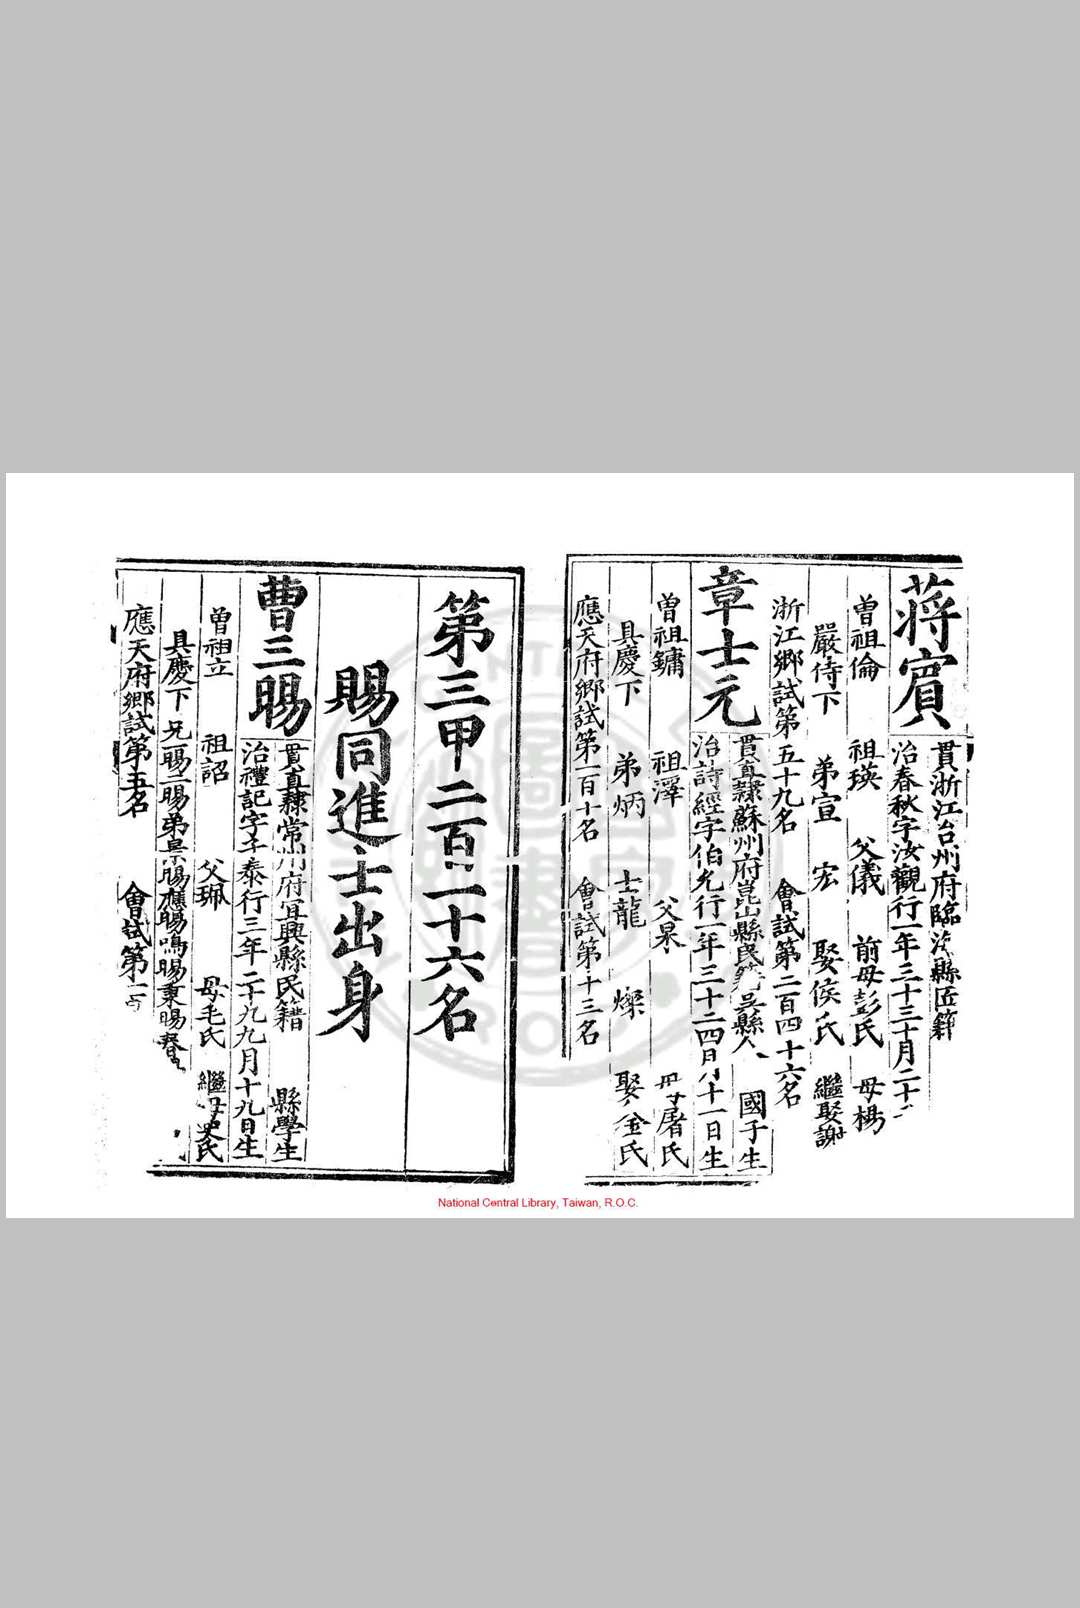 蔣賓
貫浙江台州府臨海縣匠籍
治春秋字汝觀行一年三十三十月二十
曾祖倫 祖瑛 父儀 前母彭氏 母楊
嚴侍下 弟宣 宏 娶侯氏 繼娶謝
浙江鄉試第五十九名 會試第二百四十六名
章士元
貫直隸蘇州府崑山縣民籍吳縣人 國子生
治詩經字伯允行一年三十二四月十一日生
曾祖鏞 祖澤 父杲 母屠氏
具慶下 弟炳 士龍 燦 娶金氏
應天府鄉試第一百十名 會試第十三名
第三甲二百二十六名
賜同進士出身
曹三暘
貫直隸常州府宜興縣民籍 縣學生
治禮記字子泰行三年二十九九月十九日生
曾祖立 祖詔 父珮 母毛氏 繼母史氏
具慶下 兄一暘二暘弟暘應暘鳴暘東暘春
應天府鄉試第五名 會試第一百
National Central Library, Taiwan, R.O.C.